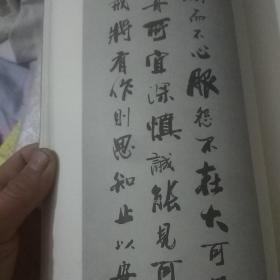 而不心服怨不在大可
可宜深慎誠能見可
戒將有作則思知止以安